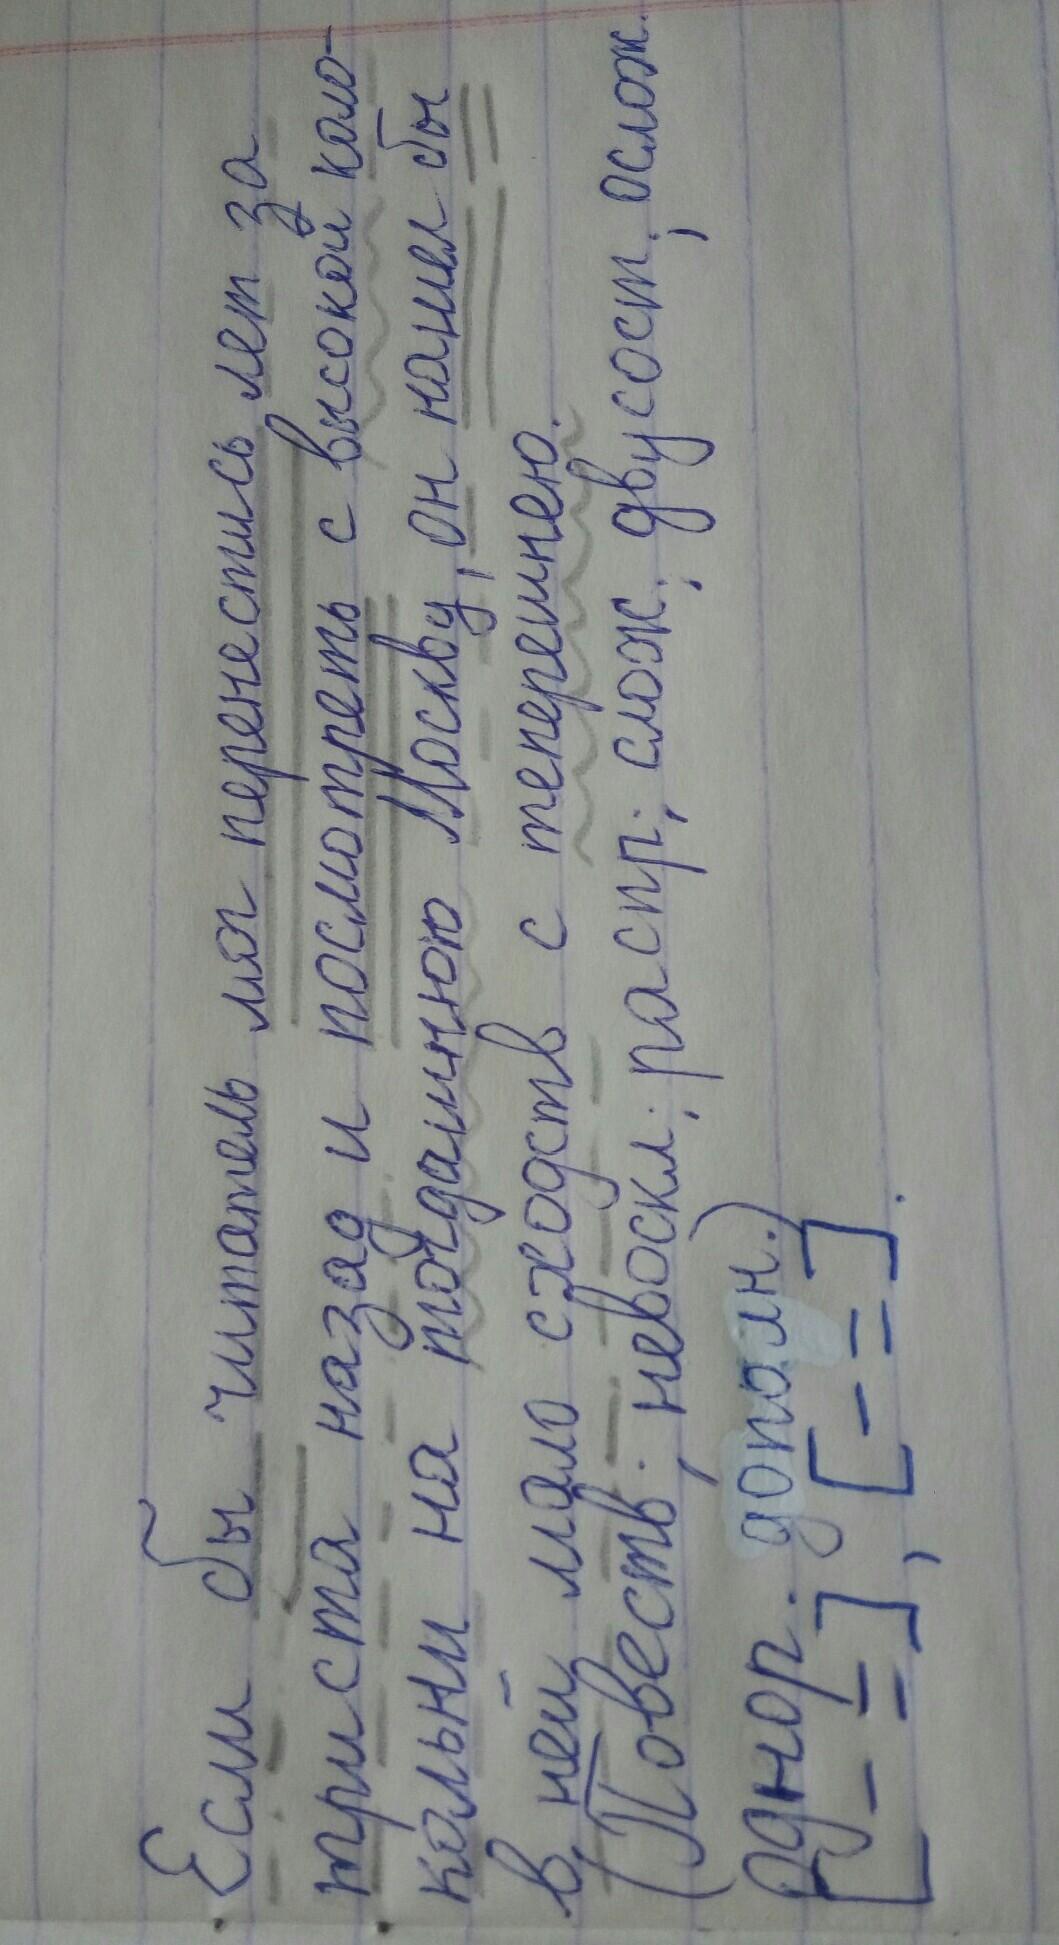 Если бы читатель мог перенестись лет за
триста назад и посмотреть с высокой коло-
кольни на тогдашнюю Москву, он нашел бы
в ней мало сходств с теперешнею.
(Повеств.; невоскл.; распр.; слож.; двусост.; ослож.
однор. дополн.)
[– =], [– =].